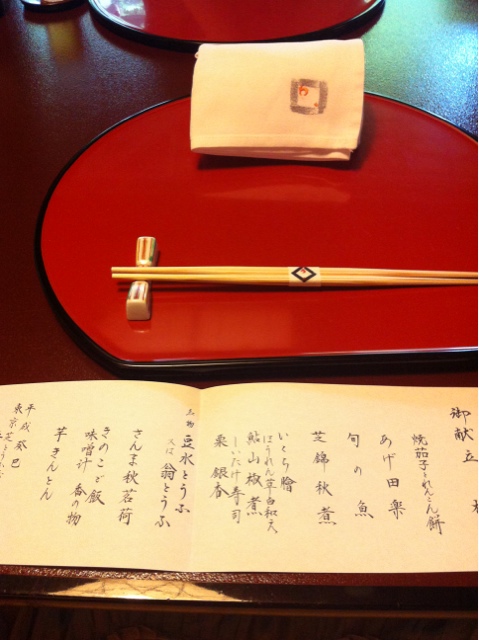 御献立
焼茄子とれんこん餅
あげ田楽
旬の魚
芝錦秋煮
いくら膾
ほうれん草白和え
鮎山椒煮
しいたけ寿司
栗 銀杏
名物 豆水とうふ
又は 翁とうふ
さんま秋茗荷
きのこご飯
味噌汁 香の物
芋きんとん
平成癸巳
東京芝とうふ